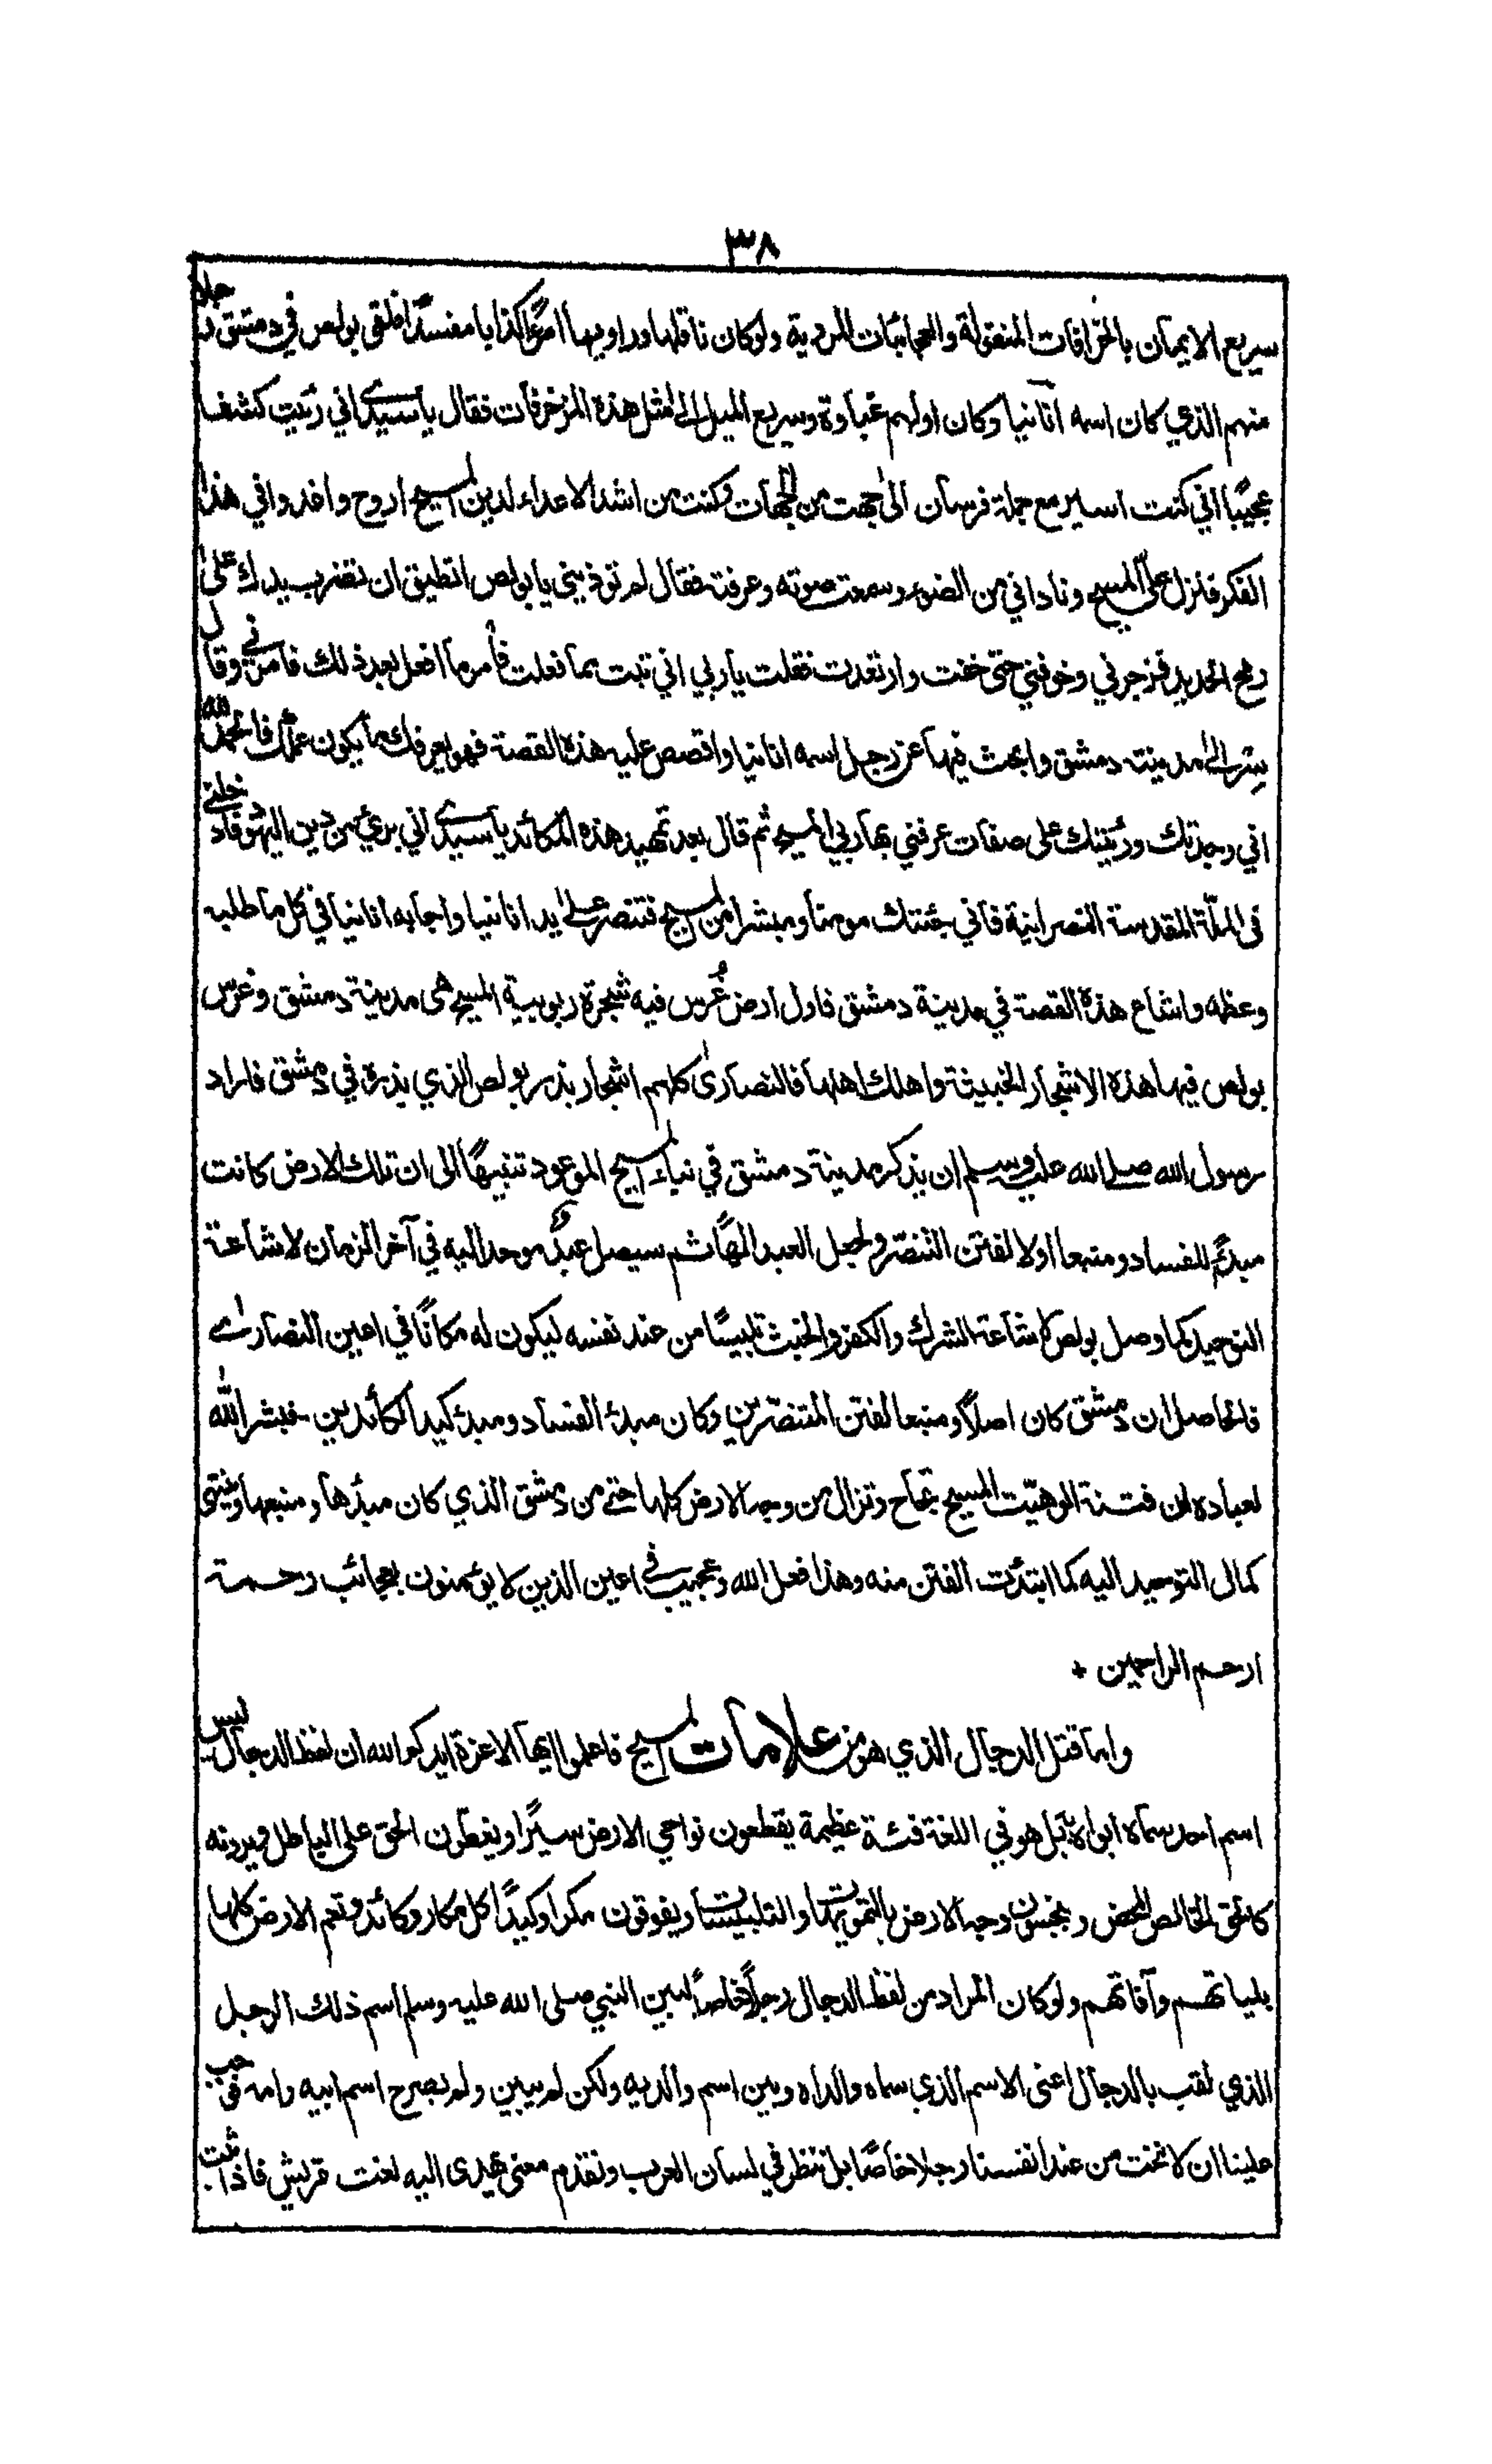 ٣٨
سريع الايمان بالخرافات المنقولة والعجائبات المروية ولوكان ناقلها وراويها امرءًا كذابا مفسدًا فلقى بولص في دمشق رجلا
منهم الذي كان اسمه انانيا وكان اولهم غباوة وسريع الميل الى مثل هذه المزخرفات فقال يا سيدى اني رئيت كشفا
عجيبًا اني كنت اسير مع جملة فرسان الى جهت من الجهات وكنت من اشد الاعداء لدين المسيح اروح واغدو في هذا
الفكر فنزل علىّ المسيح وناداني من الضوء وسمعت صوته وعرفته فقال لم توذيني يا بولص اتطيق ان تضرب يدك على
رمح الحديد فزجرني وخوفني حتى خفت وارتعدت فقلت يا ربي اني تبت مما فعلت فأمر ما افعل بعد ذلك فامرني وقال
سِر الى مدينة دمشق وابحث فيها عن رجل اسمه انانيا واقصص عليه هذه القصة فهو يعرفك ما يكون عملك فالحمد لله
اني وجدتك ورئيتك على صفات عرفني بها ربي المسيح ثم قال بعد تمهيد هذه المكائد يا سيدى اني برئ من دين اليهود فادخلني
فى الملّة المقدسة النصرانية فاني جئتك مومنا ومبشرا من المسيح فتنصر على يد انانيا واجابه انانيا في كل ما طلبه
وعظمه واشاع هذه القصة في مدينة دمشق فاول ارض غُرس فيه شجرة ربوبية المسيح هى مدينة دمشق وغرس
بولص فيها هذه الاشجار الخبيثة واهلك اهلها فالنصارى كلهم اشجار بذر بولص الذي بذره في دمشق فاراد
رسول الله صلى الله عليه وسلم ان يذكر مدينة دمشق في نباء المسيح الموعود تنبيهًا الى ان تلك الارض كانت
مبدءً للفساد ومنبعا اولا لفتن التنصر ولجعل العبد الهًا ثم سيصل عبدٌ موحد اليه في آخر الزمان لاشاعة
التوحيد كما وصل بولص لاشاعة الشرك والكفر والخبث تلبيسًا من عند نفسه ليكون له مكانًا في اعين النصارى
فالحاصل ان دمشق كان اصلا ومنبعا لفتن المتنصرين وكان مبدء الفساد ومبدء كيد الكائدين - فبشر الله
لعباده ان فتنة الوهيّت المسيح تجاح وتزال من وجه الارض كلها حتى من دمشق الذي كان مبدءها ومنبعها وينتهى
كمال التوحيد اليه كما ابتدئت الفتن منه وهذا فعل الله وعجيب في اعين الذين لا يؤمنون بعجائب رحمة
ارحم الراحمين +
واما قتل الدجال الذي هو من علامات المسيح فاعلموا ايها الاعزة ايدكم الله ان لفظ الدجال ليس
اسم احد سماه ابواه بل هو في اللغة فئة عظيمة يقطعون نواحي الارض سيرًا ويغطّون الحق على الباطل ويرونه
كالحق الخالص المحض وينجسون وجه الارض بالتمويهات والتلبيسات ويفوقون مكرا وكيدًا كل مكار وكائد وتعم الارض كلها
بلياتهم وآفاتهم ولو كان المراد من لفظ الدجال رجلًا خاصًا لبين النبي صلى الله عليه وسلم اسم ذلك الرجل
الذي لقب بالدجال اعنى الاسم الذي سماه والداه وبين اسم والديه ولكن لم يبين ولم يصرح اسم ابيه وامه فوجب
علينا ان لا ننحت من عند انفسنا رجلا خاصًا بل ننظر في لسان العرب ونقدم معنى يهدى اليه لغت قريش فاذا ثبت